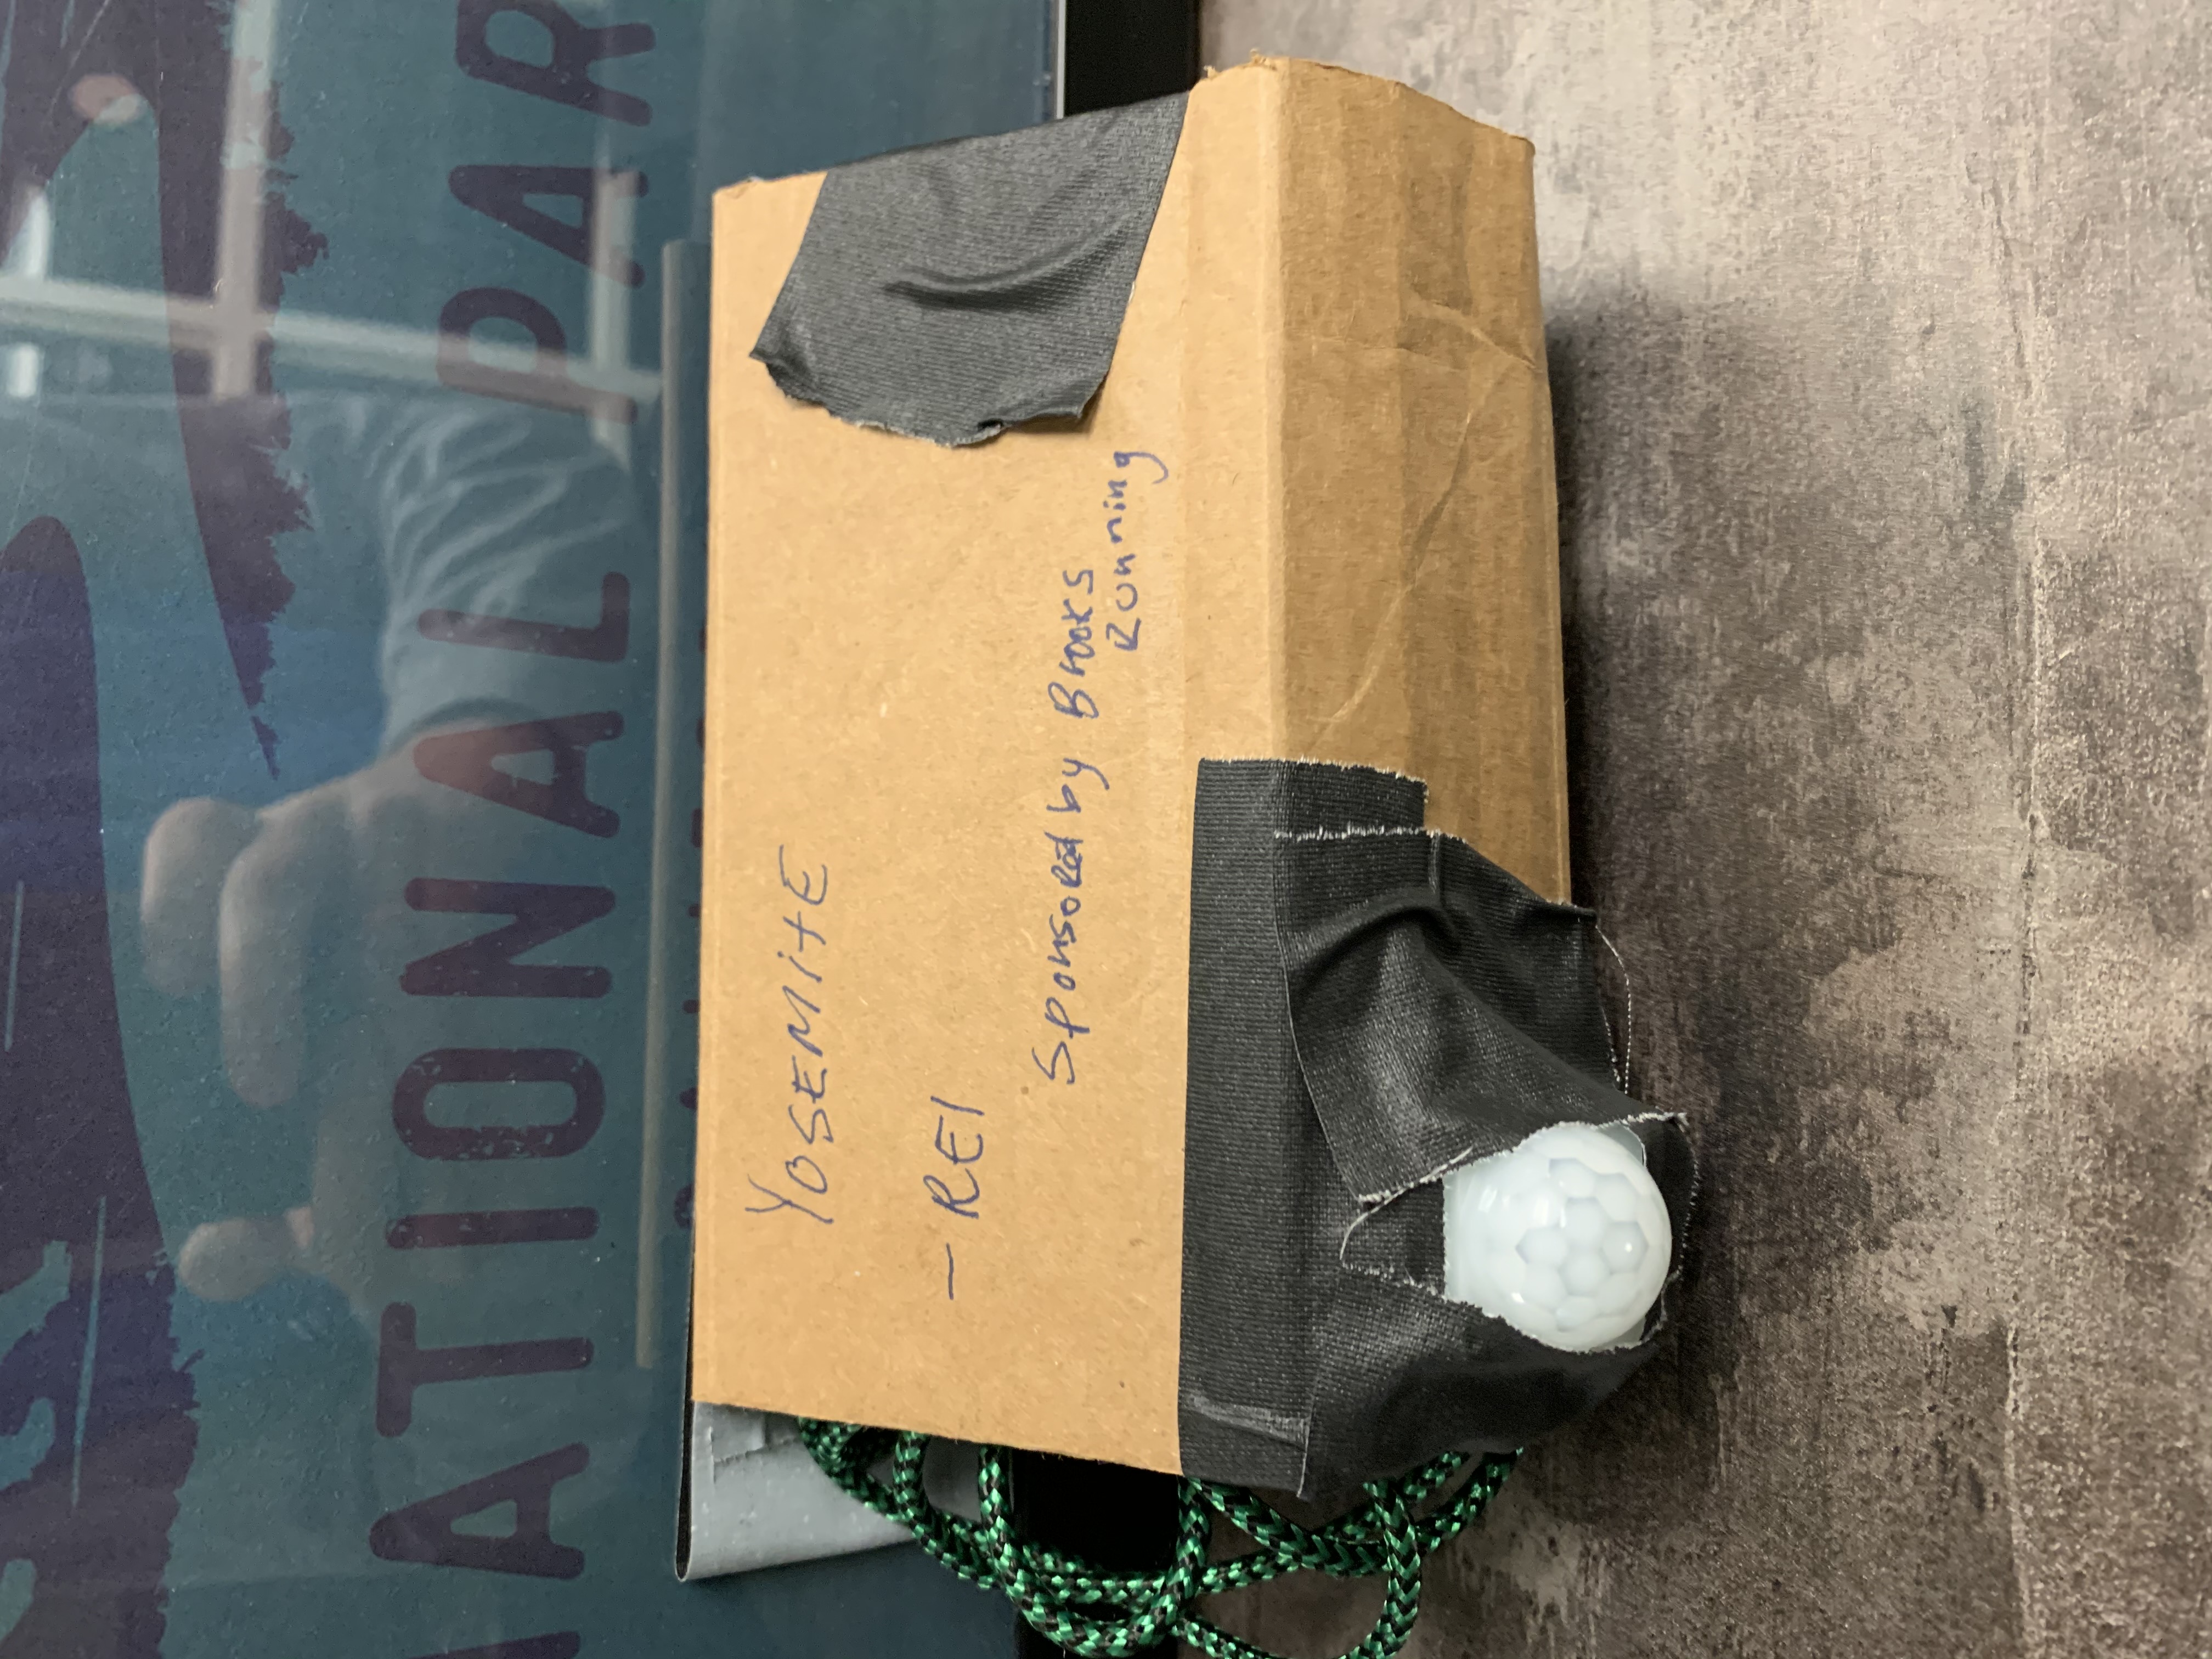 NATIONAL PAR
YOSEMITE
- REI
Sponsored by Brooks
Running